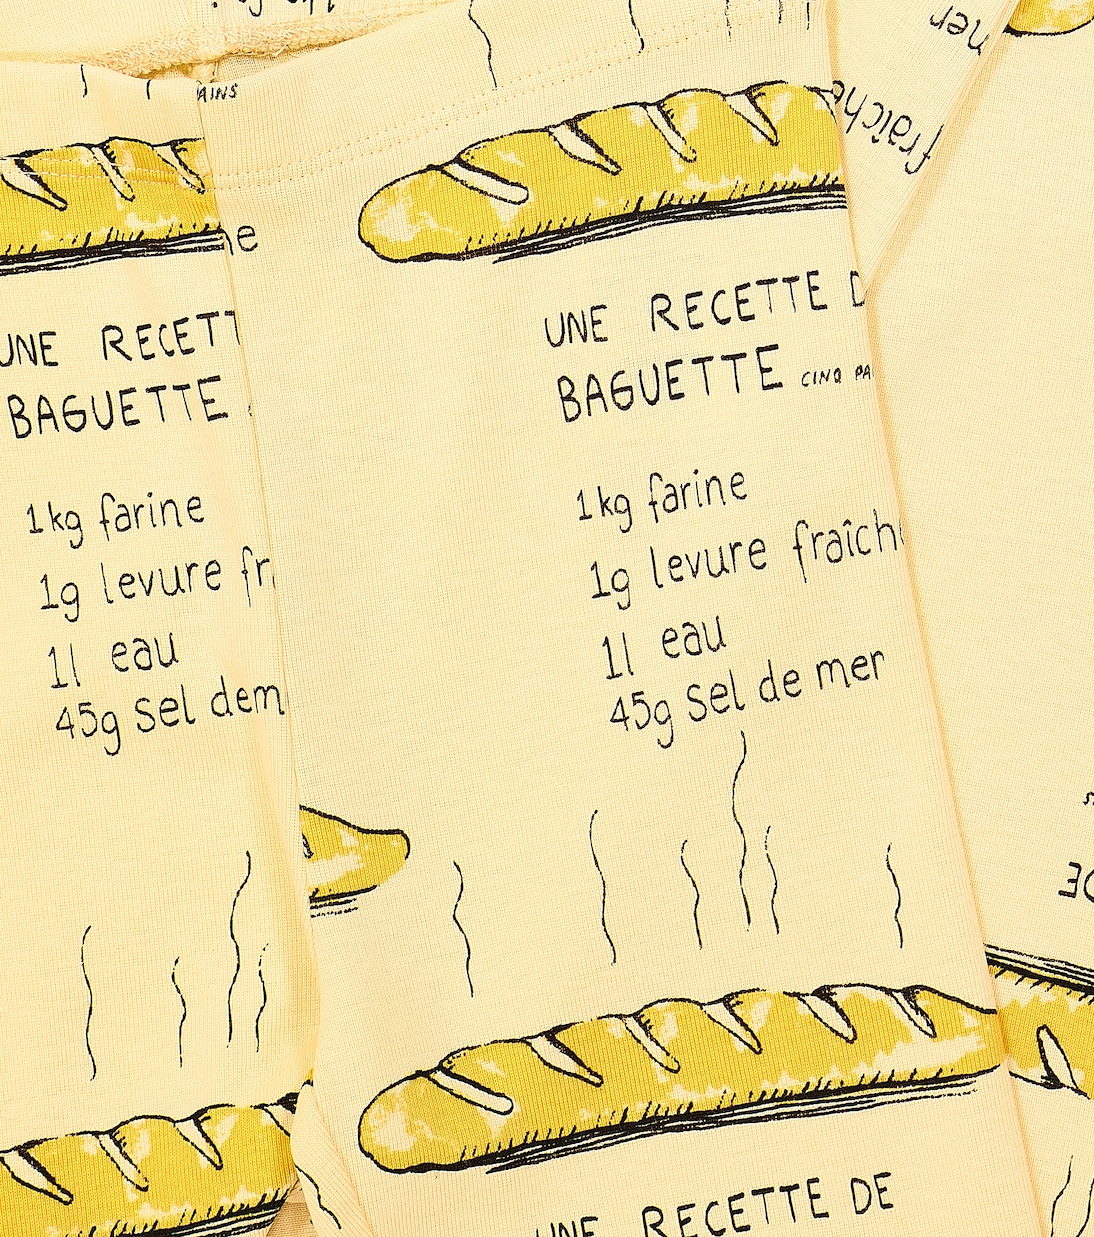 AINS
ne
UNE RECETT
BAGUETTE
1kg farine
1g levure fr
1l eau
45g sel dem
UNE RECETTE D
BAGUETTE CINQ PA
1kg farine
1g levure fraîch
1l eau
45g sel de mer
UNE RECETTE DE
mer
fraîche
DE